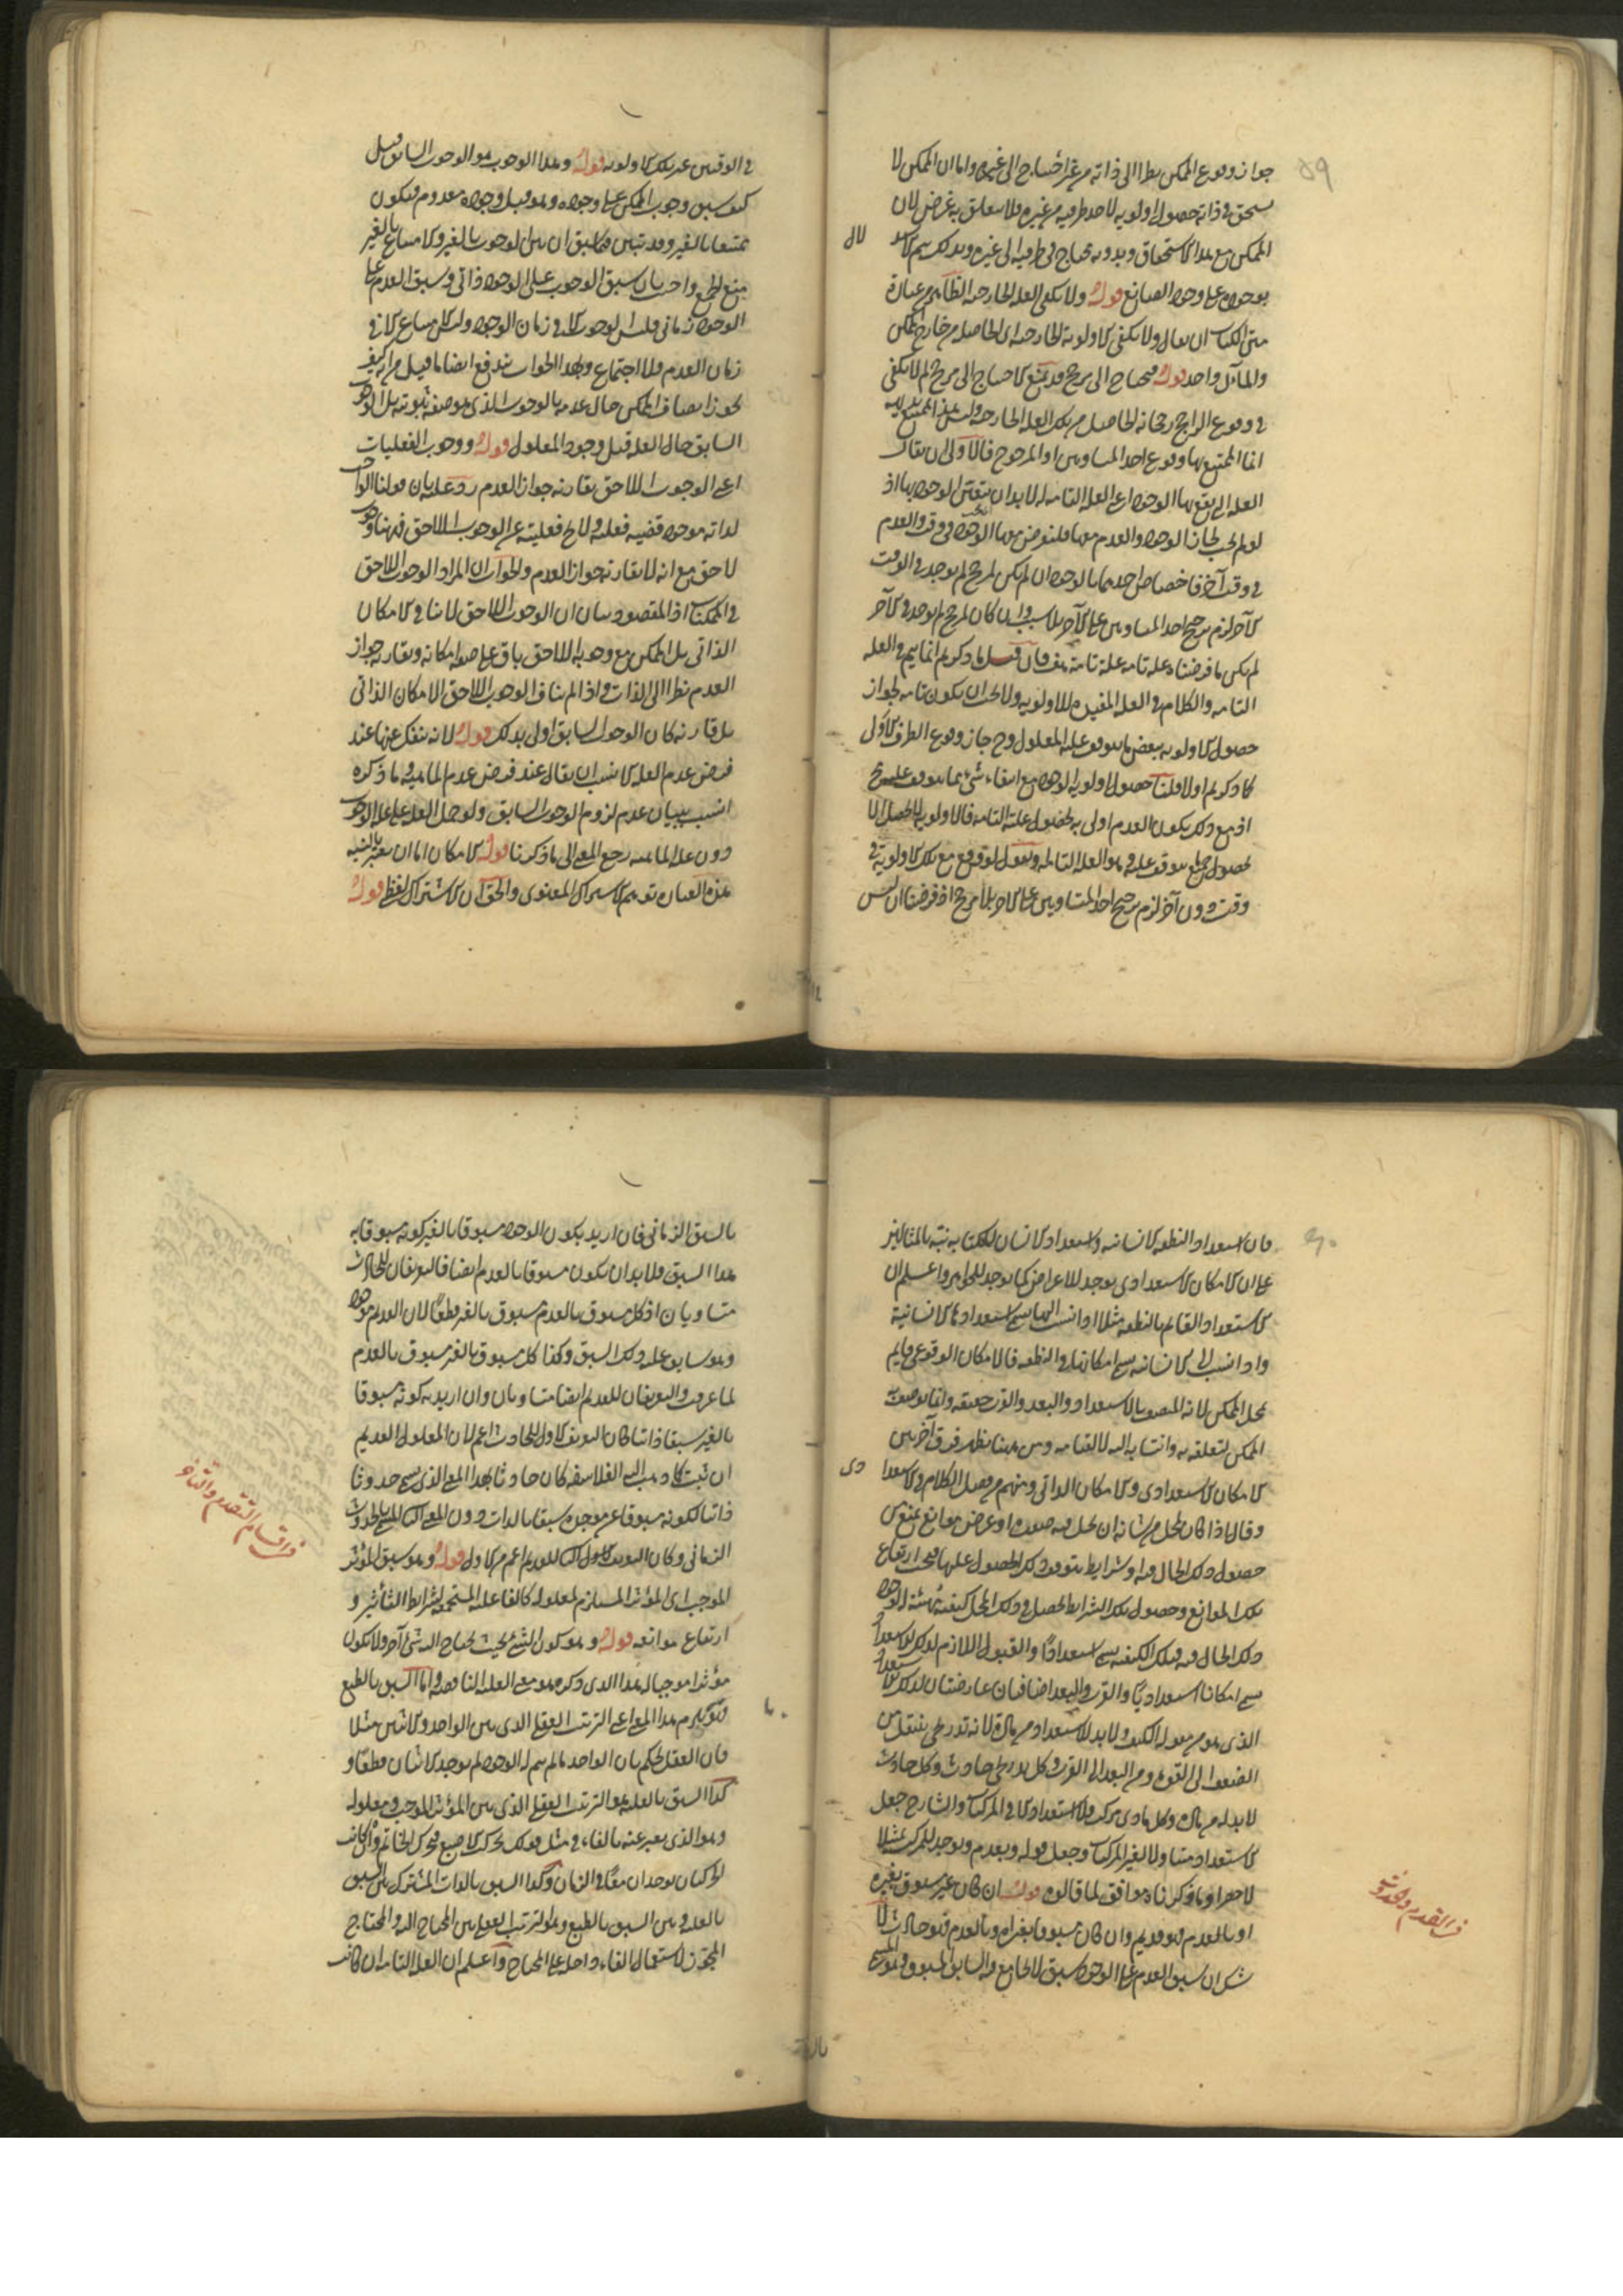 ٥٩
جواز وقوع الممكن نظرا الى ذاته من غير احتياج الى غيره واما ان الممكن لا
يستحق في ذاته حصول اولوية لاحد طرفيه من غيره فلا يتعلق به غرض لان
الممكن مع هذا الاستحقاق وبدونه محتاج في طرفيه الى غيره وبذلك يتم
بوجوده على وجود الصانع قوله ولا تكفى العلة الخارجة الظاهر من عبارة
متن الكتاب ان يقال ولا تكفى الاولوية الخارجة اى الحاصلة من خارج الممكن
والمآل واحد قوله فيحتاج الى مرجح قد يمنع الاحتياج الى مرجح لم لا يكفى
في وقوع الراجح رجحانه الحاصل من تلك العلة الخارجة وليس هذا ممتنع بديهة
انما الممتنع بها وقوع احد المتساويين او المرجوح فالاولى ان يقال
العلة التى يقع بها الوجود اعنى العلة التامة له لا بد ان يتعين الوجود بها اذ
لو لم يجب لجاز الوجود والعدم معها فلنفرض معها الوجود في وقت والعدم
في وقت آخر فاختصاص احدهما بالوجود ان لم يكن لمرجح لم يوجد في الوقت
الآخر لزم ترجيح احد المتساويين على الآخر بلا سبب وان كان لمرجح لم يوجد في الآخر
لم يكن ما فرضناه علة تامة علة تامة هف فان قيل ما ذكرتم انما يتم في العلة
التامة والكلام في العلة المفيدة للاولوية ولا يجب ان يكون تامة لجواز
حصول الاولوية ببعض ما يتوقف عليه المعلول وح جاز وقوع الطرف الاولى
كما ذكرتم اولا قلنا حصول اولوية الوجود مع انتفاء شئ مما يتوقف عليه مح
اذ مع ذلك يكون العدم اولى به لحصول علته التامة فالاولوية لا تحصل الا
بحصول جميع ما يتوقف عليه وهو العلة التامة ونقول لو وقع مع تلك الاولوية في
وقت دون آخر لزم ترجيح احد المتساويين على الآخر بلا مرجح اذ فرضنا ان ليس
في الوقتين غير تلك الاولوية قوله وهذا الوجوب هو الوجوب السابق قيل
كيف يسبق وجوب الممكن على وجوده وهو قبل وجوده معدوم فيكون
ممتنعا بالغير وقد تبين فيما سبق ان بين الوجوب بالغير والامتناع بالغير
منع الجمع واجيب بان سبق الوجوب على الوجود ذاتى وسبق العدم على
الوجود زمانى فليس الوجوب الا في زمان الوجود وليس الامتناع الا في
زمان العدم فلا اجتماع وبهذا الجواب يندفع ايضا ما قيل من انه كيف
يجوز اتصاف الممكن حال عدمه بالوجوب الذى هو صفة ثبوتية بل الوجوب
السابق حال العلة قبل وجود المعلول قوله ووجوب الفعليات
اعنى الوجوب اللاحق يقارنه جواز العدم رد عليه بان قولنا الواجب
لذاته موجود قضية فعلية ولا يخ فعليته عن الوجوب اللاحق فههنا وجوب
لاحق مع انه لا يقارنه جواز العدم والجواب ان المراد الوجوب اللاحق
في الممكنات اذ المقصود بيان ان الوجوب اللاحق لا ينافى الامكان
الذاتى بل الممكن مع وجوبه اللاحق باق على صفة امكانه ويقارنه جواز
العدم نظرا الى الذات واذا لم يناف الوجوب اللاحق الامكان الذاتى
بل قارنه كان الوجوب السابق اولى بذلك قوله لانه ينفك عنها عند
فرض عدم العلة الانسب ان يقال عند فرض عدم الماهية وما ذكره
انسب ببيان عدم لزوم الوجوب السابق ولو حمل العلة على علة الوجوب
دون علة الماهية رجع المعنى الى ما ذكرنا قوله الامكان اما ان يعتبر بالنسبة
هذه العبارة توهم الاشتراك المعنوى والحق ان الاشتراك لفظى قوله
٦٠
فان استعداد النطفة للانسانية واستعداد الانسان للكتابة نبه بالمثالين
على ان الامكان الاستعدادى يوجد للاعراض كما يوجد للجواهر واعلم ان
الاستعداد القائم بالنطفة مثلا اذا نسب اليها سمى استعدادها للانسانية
واذا نسب الى الانسانية سمى امكانها في النطفة فالامكان الوقوعى قايم
بمحل الممكن لانه المتصف بالاستعداد والبعد والقرب حقيقة وانما يوصف به
الممكن لتعلقه به وانتسابه اليه لا لقيامه ومن ههنا يظهر فرق آخر بين
الامكان الاستعدادى والامكان الذاتى ومنهم من فصل الكلام في الاستعدادى
وقال اذا كان لمحل من شانه ان يحل فيه صورة او عرض موانع تمنع من
حصول ذلك الحال فيه او شرايط يتوقف ذلك الحصول عليها فبحسب ارتفاع
تلك الموانع وحصول تلك الشرايط تحصل في ذلك المحل كيفية مهيئة لوجود
ذلك الحال فيه وتلك الكيفية تسمى استعدادا والقبول اللازم لذلك الاستعداد
سمى امكانا استعداديا والقرب والبعد اضافتان عارضتان لذلك الاستعداد
الذى هو من مقولة الكيف ولا بد للاستعداد من مادة لانه تدريجى ينتقل من
الضعف الى القوة ومن البعد الى القرب وكل تدريجى حادث وكل حادث
لا بد له من مادة وكل مادى مركب فلا استعداد الا في المركبات والشارح جعل
الاستعداد متناولا لغير المركبات وجعل قوله ويعدم ويوجد للمركبات تمثيلا
لا حصرا وما ذكرناه موافق لما قالوه قوله ان كان غير مسبوق بغيره
او بالعدم فهو قديم وان كان مسبوقا بغيره او بالعدم فهو حادث لا
شك ان سبق العدم على الوجود سبق لا يجامع فيه السابق المسبوق وهو المسمى
في القدم والحدوث
بالسبق الزمانى فان اريد بكون الوجود مسبوقا بالغير كونه مسبوقا به
هذا السبق فلا بد ان يكون مسبوقا بالعدم ايضا فالتعريفان للحادث
متساويان اذ كل مسبوق بالعدم مسبوق بالغير قطعا لان العدم غير الوجود
وهو سابق عليه ذلك السبق وكذا كل مسبوق بالغير مسبوق بالعدم
لما عرفت والتعريفان للقديم ايضا متساويان وان اريد به كونه مسبوقا
بالغير سبقا ذاتيا كان التعريف الاول للحادث اعم لان المعلول القديم
ان ثبت كما ذهب اليه الفلاسفة كان حادثا بهذا المعنى الذى يسمى حدوثا
ذاتيا لكونه مسبوقا عن موجده سبقا بالذات دون المعنى الثانى المسمى بالحدوث
الزمانى وكان التعريف الثانى للقديم اعم من الاول قوله وهو سبق المؤثر
الموجب اى المؤثر المستلزم لمعلوله كالفاعل المستجمع لشرايط التأثير و
ارتفاع موانعه قوله وهو كون الشئ بحيث يحتاج اليه شئ آخر ولا يكون
مؤثرا موجبا له هذا الذى ذكره هو معنى العلة الناقصة واما السبق بالطبع
فهو لازم هذا المعنى اعنى الترتب العقلى الذى بين الواحد والاثنين مثلا
فان العقل يحكم بان الواحد ما لم يتم له الوجود لم يوجد الاثنان قطعا و
كذا السبق بالعلية هو الترتب العقلى الذى بين المؤثر الموجب ومعلوله
وهو الذى يعبر عنه بالفاء في مثل قولك تحرك الاصبع فتحرك الخاتم وان كانت
الحركتان توجدان معا في الزمان وكذا السبق بالذات المشترك بين السبق
بالعلية وبين السبق بالطبع وهو الترتب العقلى بين المحتاج اليه والمحتاج
المجوز لاستعمال الفاء داخلة على المحتاج واعلم ان العلة التامة ان كانت
في اقسام التقدم والتأخر